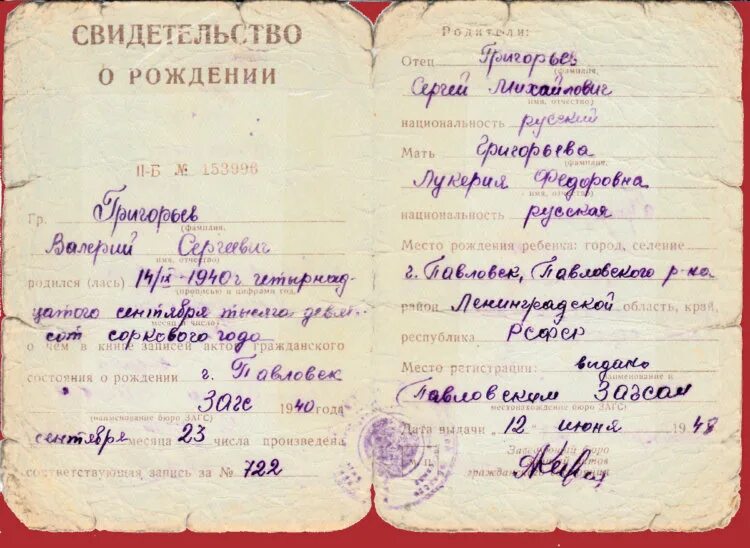 СВИДЕТЕЛЬСТВО
О РОЖДЕНИИ
II-Б № 153996
Гр. Григорьев
(фамилия,
Валерий Сергеевич
имя, отчество)
родился (лась) 14/IX-1940 г четырнад
(прописью и цифрами год,
цатого сентября тысяча девять
месяц и число)
сот сорокового года
о чем в книге записей актов гражданского
состояния о рождении г. Павловск
ЗАГС 1940 года
(наименование бюро ЗАГС)
сентября месяца 23 числа произведена
соответствующая запись за № 722
Родители:
Отец Григорьев
(фамилия,
Сергей Михайлович
имя, отчество)
национальность русский
Мать Григорьева
(фамилия,
Лукерия Федоровна
имя, отчество)
национальность русская
Место рождения ребенка: город, селение
г. Павловск, Павловского р-на
район Ленинградской область, край,
республика РСФСР
Место регистрации: выдано
наименование и
Павловским Загсом
местонахождение бюро ЗАГС)
Дата выдачи „12" июня 1948
Заведующий бюро